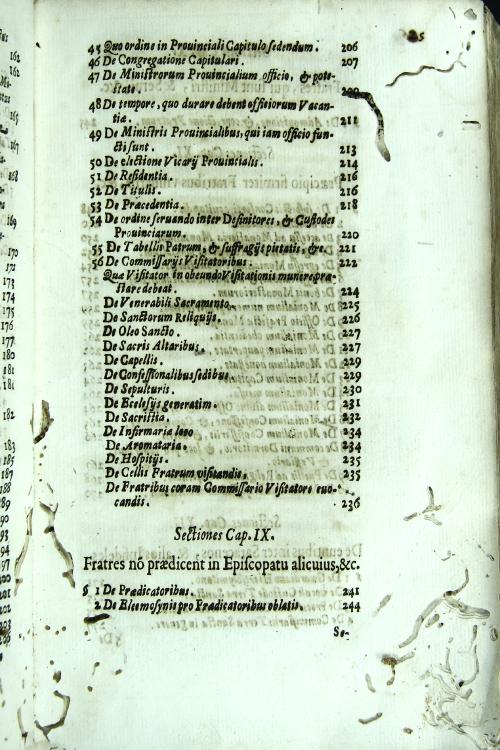 45 Quo ordine in Prouinciali Capitulo sedendum. 206
46 De Congregatione Capitulari. 207
47 De Ministrorum Prouincialium officio, & pote-
state. 209
48 De tempore, quo durare debent officiorum Vacan-
tia. 211
49 De Ministris Prouincialibus, qui iam officio fun-
cti sunt. 213
50 De electione Vicarij Prouincialis. 214
51 De Residentia. 216
52 De Titulis. 216
53 De Præcedentia. 218
54 De ordine seruando inter Definitores, & Custodes
Prouinciarum. 220
55 De Tabellis Patrum, & suffragijs pietatis, &c. 221
56 De Commissarijs Visitatoribus. 222
Quæ Visitator in obeundo Visitationis munere præ-
stare debeat. 224
De Venerabili Sacramento. 225
De Sanctorum Reliquijs. 226
De Oleo Sancto. 227
De Sacris Altaribus. 227
De Capellis. 229
De Confessionalibus sedibus. 229
De Sepulturis. 230
De Ecclesijs generatim. 231
De Sacristia. 232
De Infirmaria loco 234
De Aromataria. 234
De Hospitijs. 235
De Cellis Fratrum visitandis. 235
De Fratribus coram Commissario Visitatore euo-
candis. 236
Sectiones Cap. IX.
Fratres nō prædicent in Episcopatu alicuius, &c.
§ 1 De Prædicatoribus. 241
2 De Eleemosynis pro Prædicatoribus oblatis. 244
Se-
162
162
165
167
168
169
170
171
173
174
175
176
177
180
181
181
182
183
185
187
188